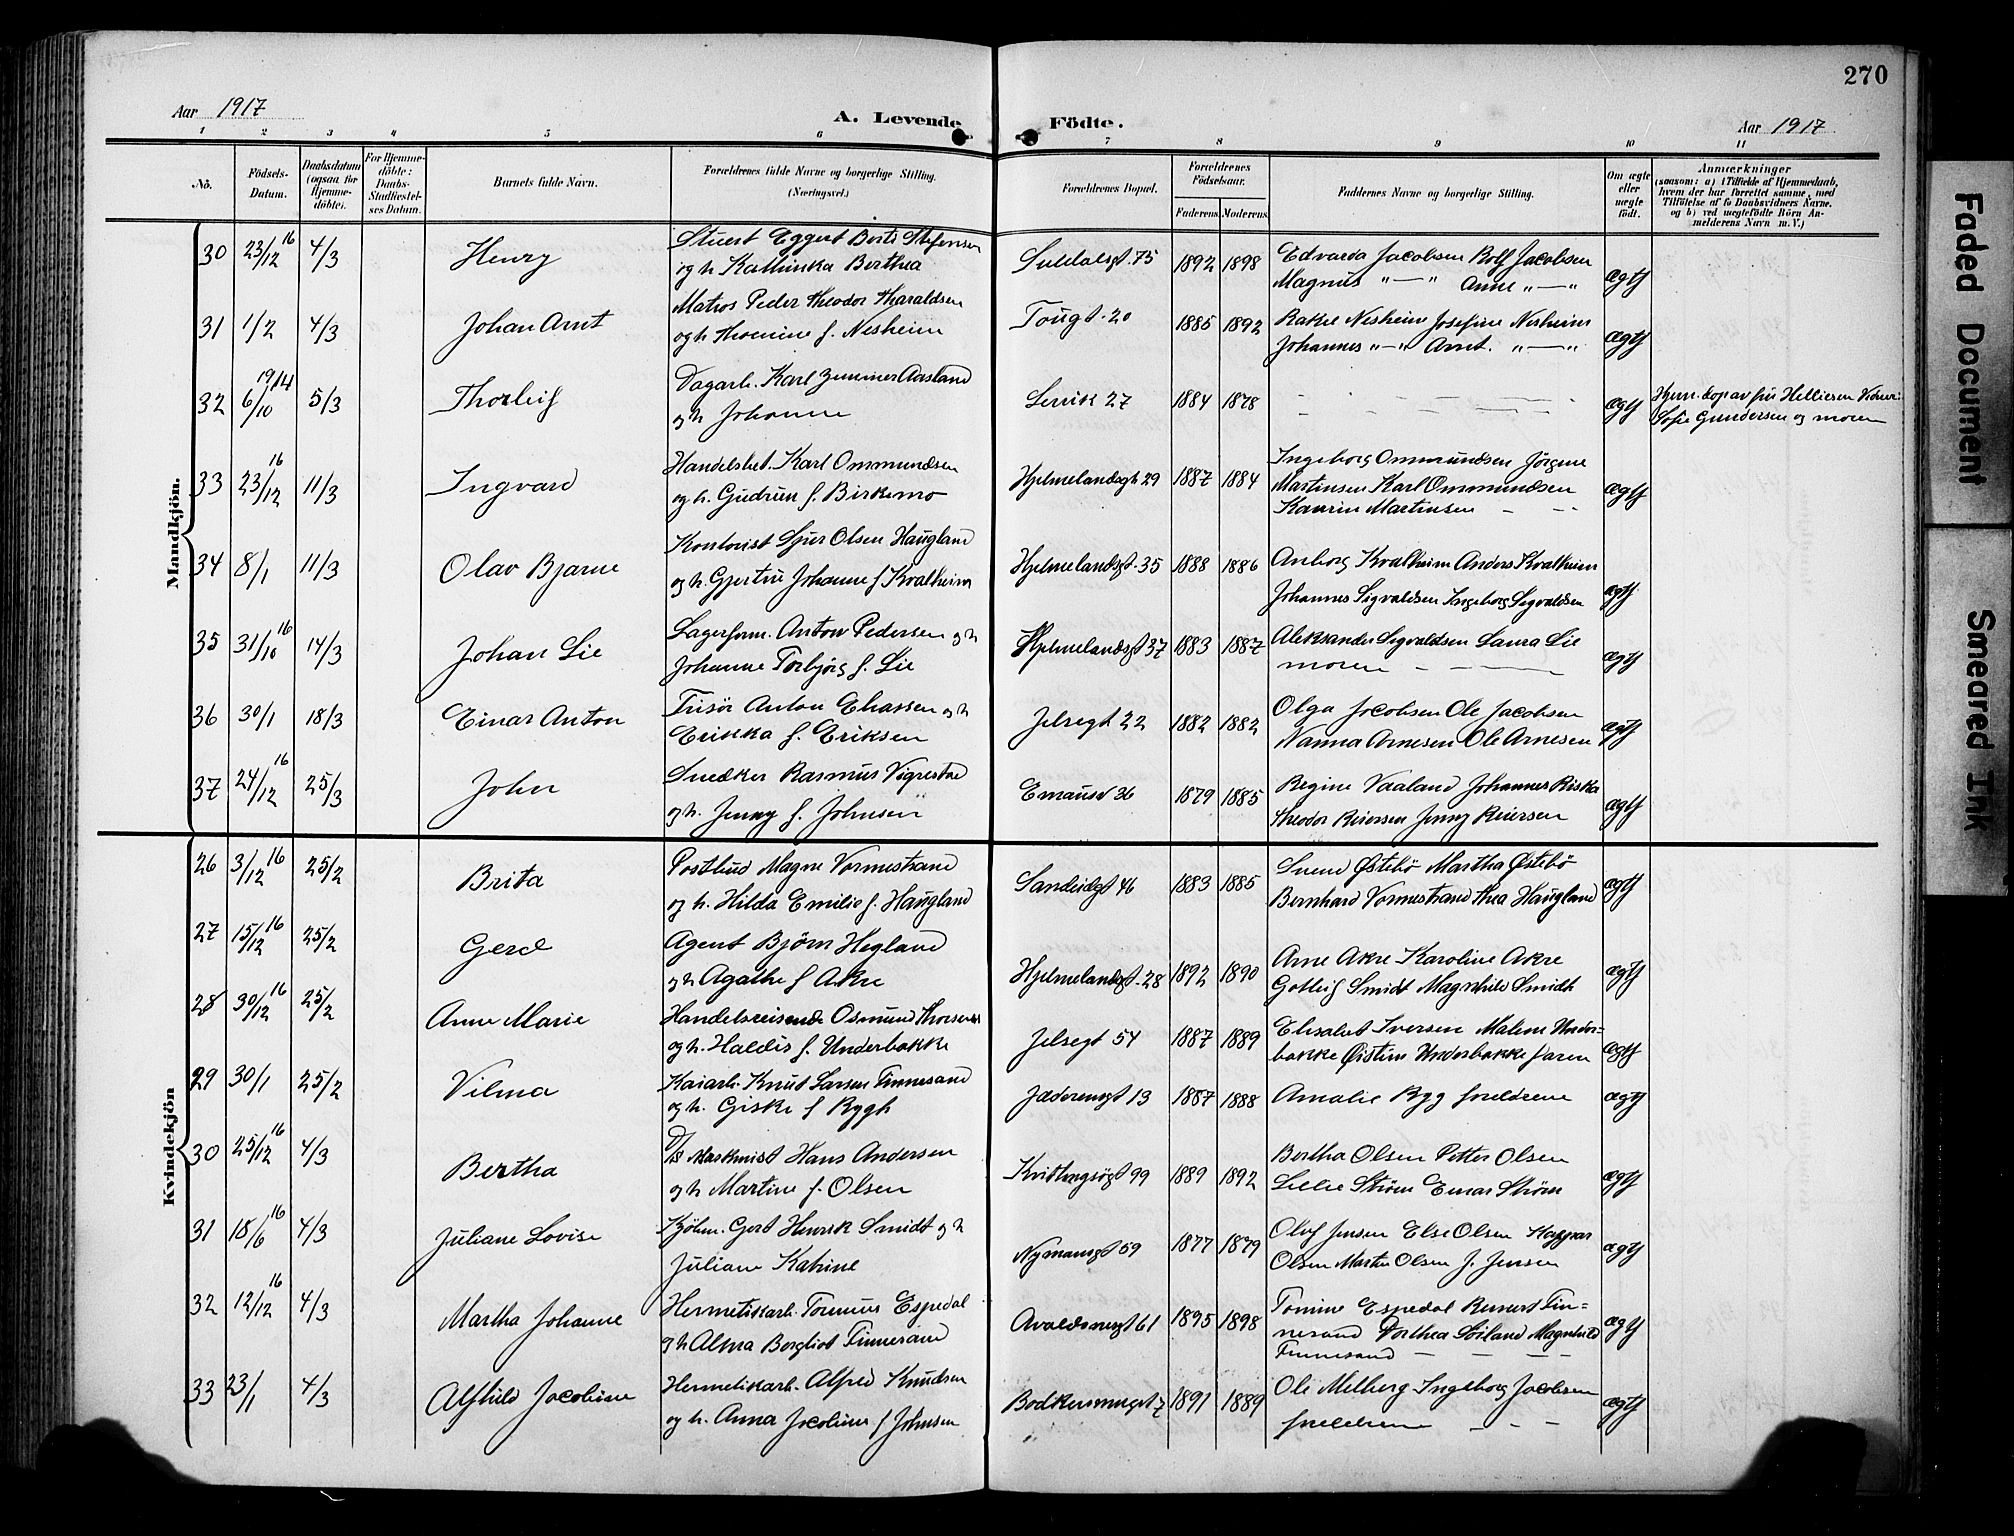 270
Aar 1917
A. Levende Födte.
Aar 1917
1 2 3 4 5 6 7 8 9 10 11
No.
Födsels-Datum.
Daabsdatum (ogsaa for Hjemme-döbte).
For Hjemme-döbte: Daabs-Stadfæstel-ses Datum.
Barnets fulde Navn.
Forældrenes fulde Navne og borgerlige Stilling. (Næringsvei.)
Forældrenes Bopæl.
Forældrenes Födselsaar.
Faderens. Moderens.
Faddernes Navne og borgerlige Stilling.
Om ægte eller uægte födt.
Anmærkninger
(saasom: a) i Tilfælde af Hjemmedaab,
hvem der har forrettet samme, med
Tilföielse af to Daabsvidners Navne.
og b) ved uægtefödte Börn An-
melderens Navn m. V.)
Mandkjön.
30 23/12 16 4/3 Henry Stuert Eggert Berts Stefensen Suldalsgt. 75 1892 1898 Edvarda Jacobsen Rolf Jacobsen ægtf
og h Kathinka Berthea Magnus " — " Anne " — "
31 1/2 4/3 Johan Arnt Matros Peder Theodor Tharaldsen Tougt. 20 1885 1892 Rakel Nesheim Josefine Nesheim ægtf
og h Thomine f. Nesheim Johannes " — " Arnt. " — "
32 6/10 1914 5/3 Thorleif Dagarb. Karl Aasland 27 1884 1878 ægtf Hjem. dop av fru Helliesen
og h Johanne Sofie Gundersen og moren
33 23/12 16 11/3 Ingvard Handelsbet. Karl Ommundsen Hjelmelandsgt 29 1887 1884 Ingeborg Ommundsen Jörgine ægtf
og h. Gudrun f. Birkemo Martinsen Karl Ommundsen
Martinsen
34 8/1 11/3 Olav Bjarne Kontorist Sjur Olsen Haugland Hjelmelandsgt. 35 1888 1886 Anborg Kvalheim Anders Kvalheim ægtf
og h. Gjertrü Johanne f Kvalheim Johannes Sigvaldsen Ingeborg Sigvaldsen
35 31/10 16 14/3 Johan Lie Lagerform. Anton Pedersen og h Hjelmelandsgt 37 1883 1887 Aleksander Sigvaldsen Laura Lie ægtf
Johanne Torbjörg f. Lie moren
36 30/1 18/3 Einar Anton Frisör Anton Eliassen og h Jelsegt 22 1882 1882 Olga Jacobsen Ole Jacobsen ægtf
Erikka f. Eriksen Nanna Arnesen Ole Arnesen
37 24/12 16 25/3 John Snedker Rasmus Vigrestad Emausv 36 1879 1885 Regine Vaaland Johannes Riska ægtf
og h. Jenny f. Johnsen Theodor Reiersen Jenny Reiersen
Kvindekjön
26 3/12 16 25/2 Brita Postbud Magne Vormestrand Sandeidgt 46 1883 1885 Svend Østebö Martha Østebö ægtf
og h. Hilda Emilie f. Haugland Bernhard Vormestrand Thea Haugland
27 15/12 16 25/2 Gerd Agent Björn Hegland Hjelmelandsgt. 28 1892 1890 Arne Akre Karoline Akre ægtf
og h Agathe f Akre Gotleif Smidt Magnhild Smidt
28 30/12 16 25/2 Anne Marie Handelsreisende Osmund Thorsen Jelsegt 54 1887 1889 Elisabet Iversen Malene Under- ægtf
og h. Haldis f. Underbakke bakke Øistein Underbakke faren
29 30/1 25/2 Vilma Kaiarb. Knut Larsen Finnesand Jæderensgt 13 1887 1888 Amalie Byg foreldrene ægtf
og h. Giske f Rygh
30 25/12 16 4/3 Bertha D/S Maskinist Hans Andersen Kvitingsögt 99 1889 1892 Bertha Olsen Petter Olsen ægtf
og h Martine f. Olsen Lillie Ström Einar Ström
31 18/6 16 4/3 Juliane Lovise Kjöbm. Gert Henrik Smidt og h Nymansgt 59 1877 1879 Oluf Jensen Else Olsen Kaspar ægtf
Juliane Katrine Olsen Martin Olsen J. Jensen
32 12/12 16 4/3 Martha Johanne Hermetikarb. Tonnius Espedal Avaldsnesgt 61 1895 1898 Tomine Espedal Finnesand ægtf
og h Alma Bergliot Finnesand Dorthea Söiland Magnhild
Finnesand
33 23/1 4/3 Alfhild Jacobine Hermetikarb. Alfred Knudsen Bødkersmuget 7 1891 1889 Ole Melberg Ingeborg Jacobsen ægtf
og h. Anna Jacobine f Johnsen foreldrene
Faded Document
Smeared Ink